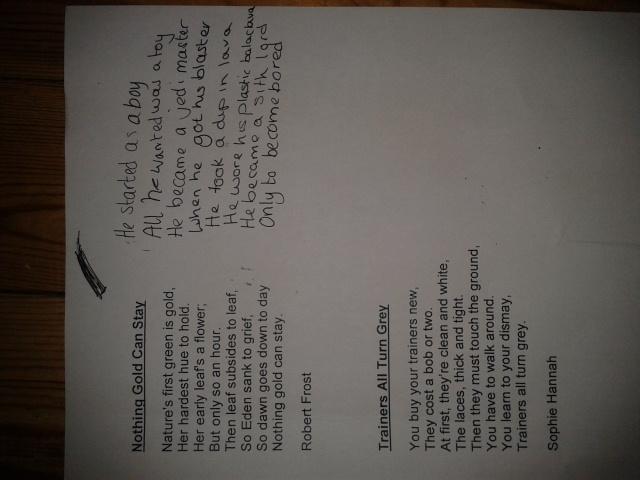 Nothing Gold Can Stay
Nature's first green is gold,
Her hardest hue to hold.
Her early leaf's a flower;
But only so an hour.
Then leaf subsides to leaf,
So Eden sank to grief,
So dawn goes down to day
Nothing gold can stay.
Robert Frost
He started as a boy
All he wanted was a toy
He became a jedi master
When he got his blaster
He took a dip in lava
He wore his plastic balaclava
He became a sith lord
Only to become bored
Trainers All Turn Grey
You buy your trainers new,
They cost a bob or two.
At first, they're clean and white,
The laces, thick and tight.
Then they must touch the ground,
You have to walk around.
You learn to your dismay,
Trainers all turn grey.
Sophie Hannah